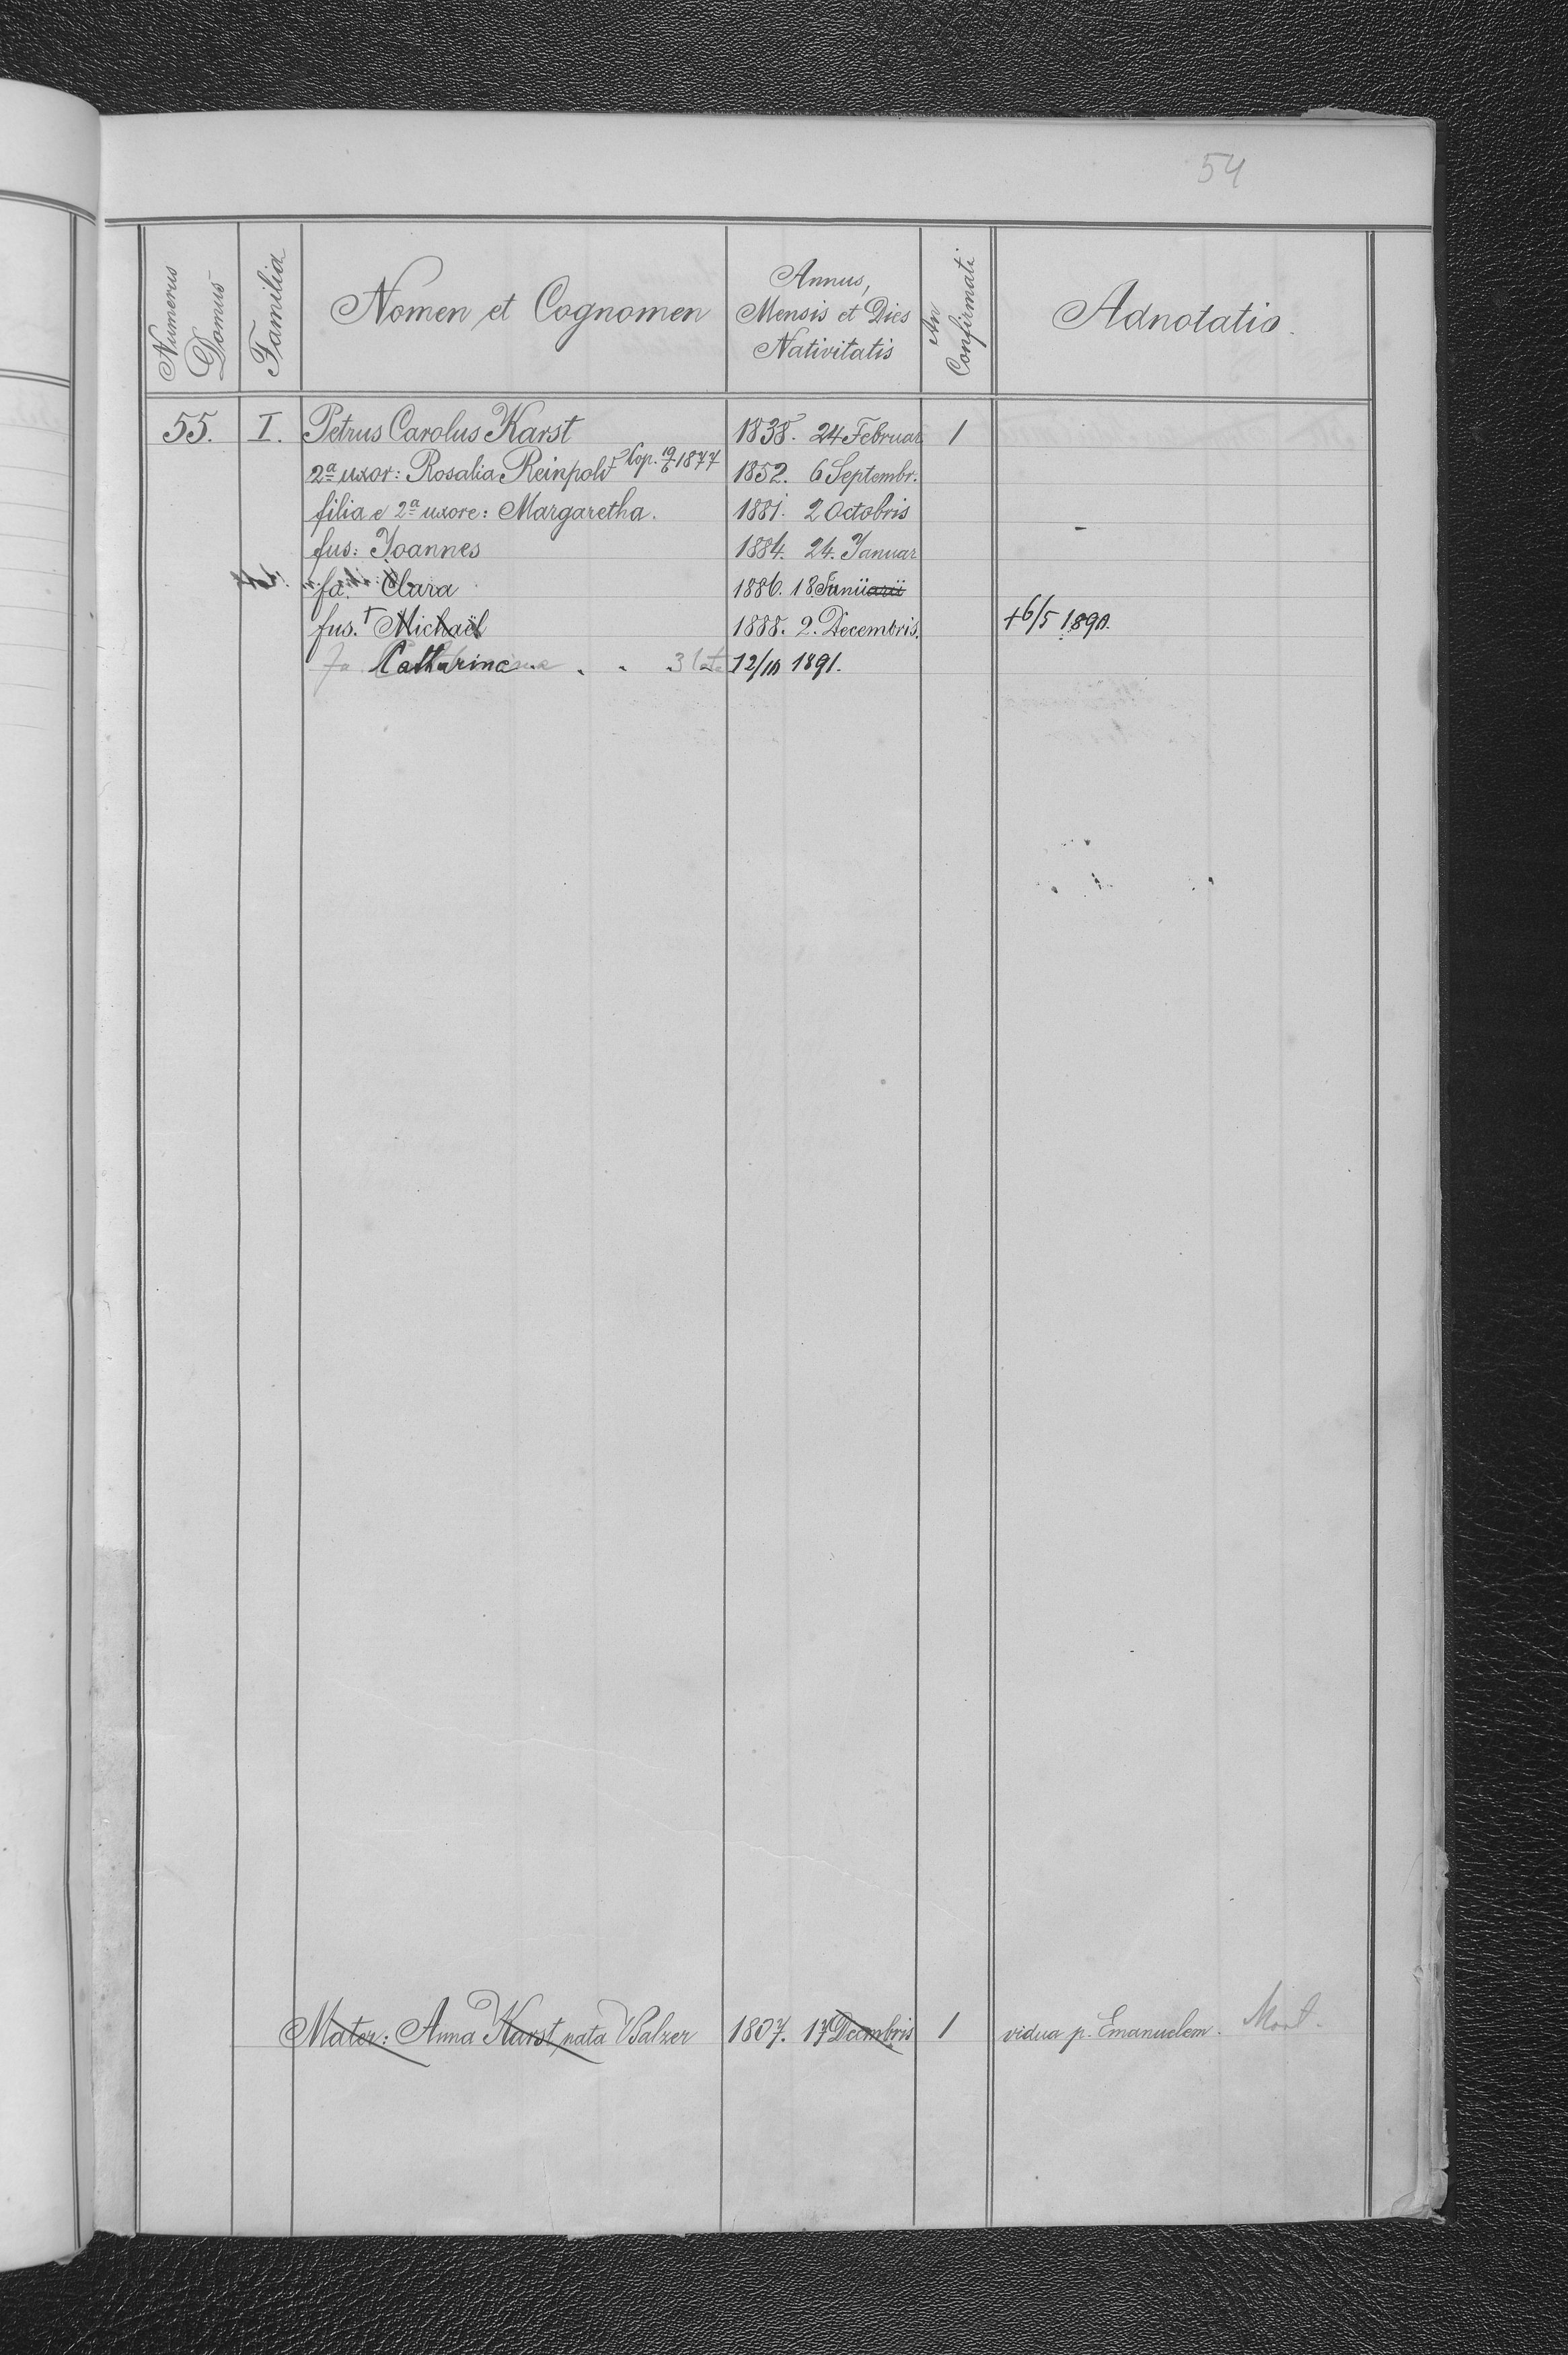 54
Numerus Domus Familia Nomen et Cognomen Annus, Mensis et Dies Nativitatis An Confirmati Adnotatio.
55. I. Petrus Carolus Karst 1838. 24 Februar 1
2a uxor: Rosalia Reinpold Cop. 19/6 1877 1852. 6 Septembr.
filia e 2a uxore: Margaretha. 1881. 2 Octobris
fus: Joannes 1884. 24. Januar
fa. Clara 1886. 18 Junii
fus. † Michaël 1888. 2. Decembris. +6/5 1890.
fa Catharina 12/10 1891.
Mater: Anna Karst nata Balzer 1807. 17 Decmbris 1 vidua p. Emanuelem. Mort.